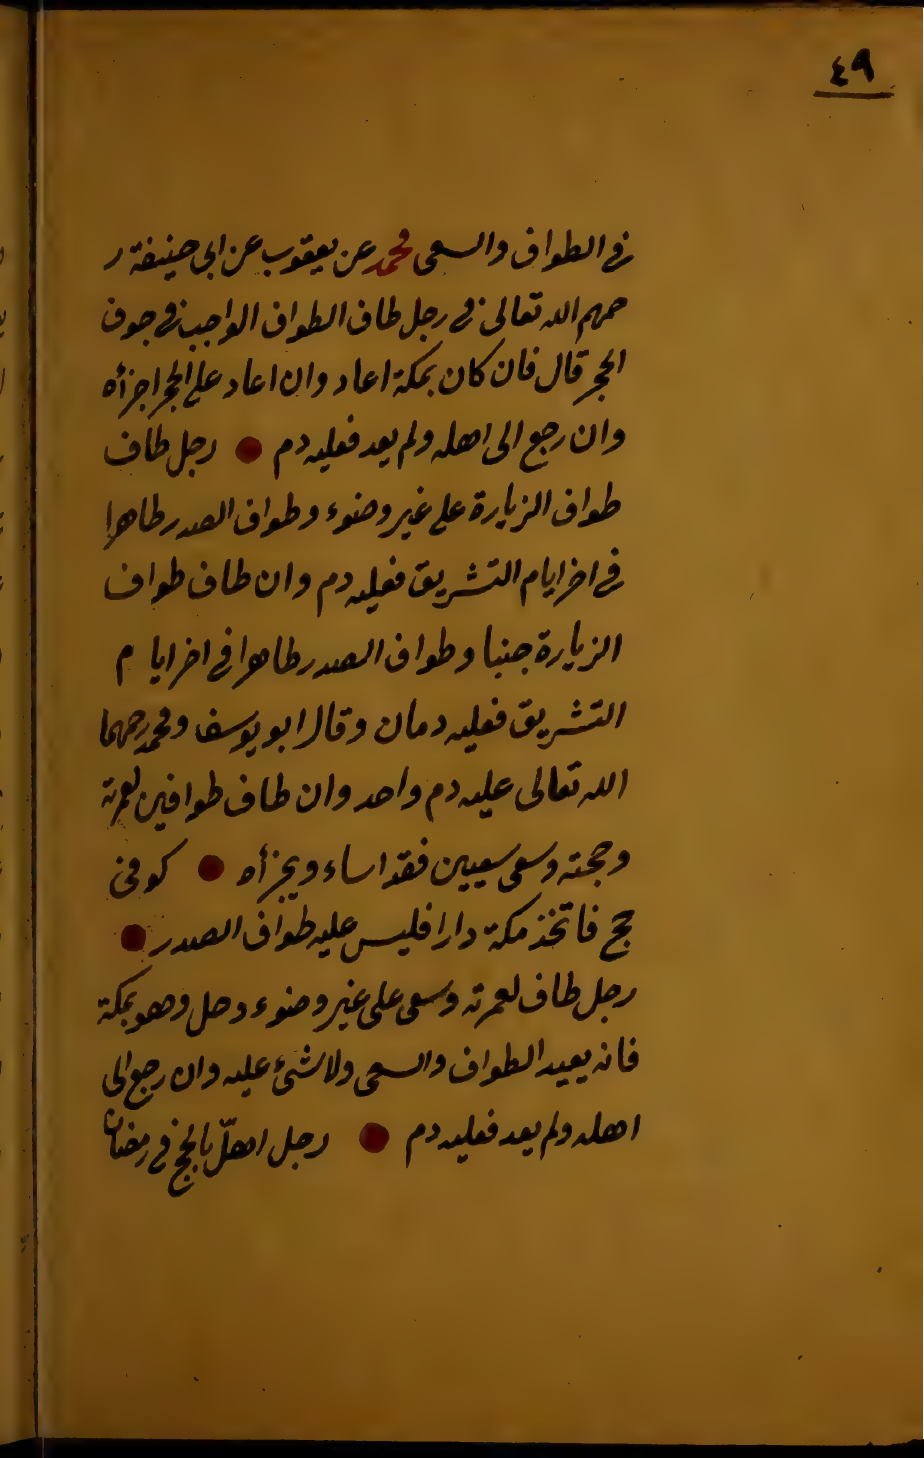 ٤٩
في الطواف والسعى محمد عن يعقوب عن ابى حنيفة ر
حمهم الله تعالى في رجل طاف الطواف الواجب في جوف
الحجر قال فان كان بمكة اعاد وان اعاد على الحجر اجزأه
وان رجع الى اهله ولم يعد فعليه دم ● رجل طاف
طواف الزيارة على غير وضوء وطواف الصدر طاهرا
في اخر ايام التشريق فعليه دم وان طاف طواف
الزيارة جنبا وطواف الصدر طاهرا في اخر ايا م
التشريق فعليه دمان وقال ابو يوسف ومحمد رحمهما
الله تعالى عليه دم واحد وان طاف طوافين لعمرته
وحجته وسعى سعيين فقد اساء ويجزأه ● كوفى
حج فاتخذ مكة دارا فليس عليه طواف الصدر ●
رجل طاف لعمرته وسعى على غير وضوء وحل وهو بمكة
فانه يعيد الطواف والسعى ولا شئ عليه وان رجع الى
اهله ولم يعد فعليه دم ● رجل اهلّ بالحج في رمضان